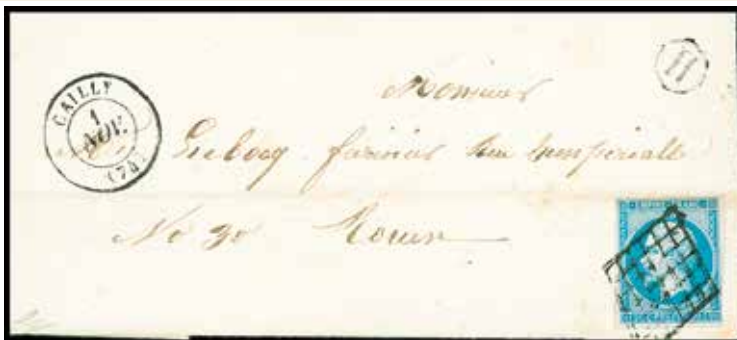 CAILLY
1
NOV.
(74)
H
Monsieur
Lebocq farinier Rue Impérialle
No 90 Rouen